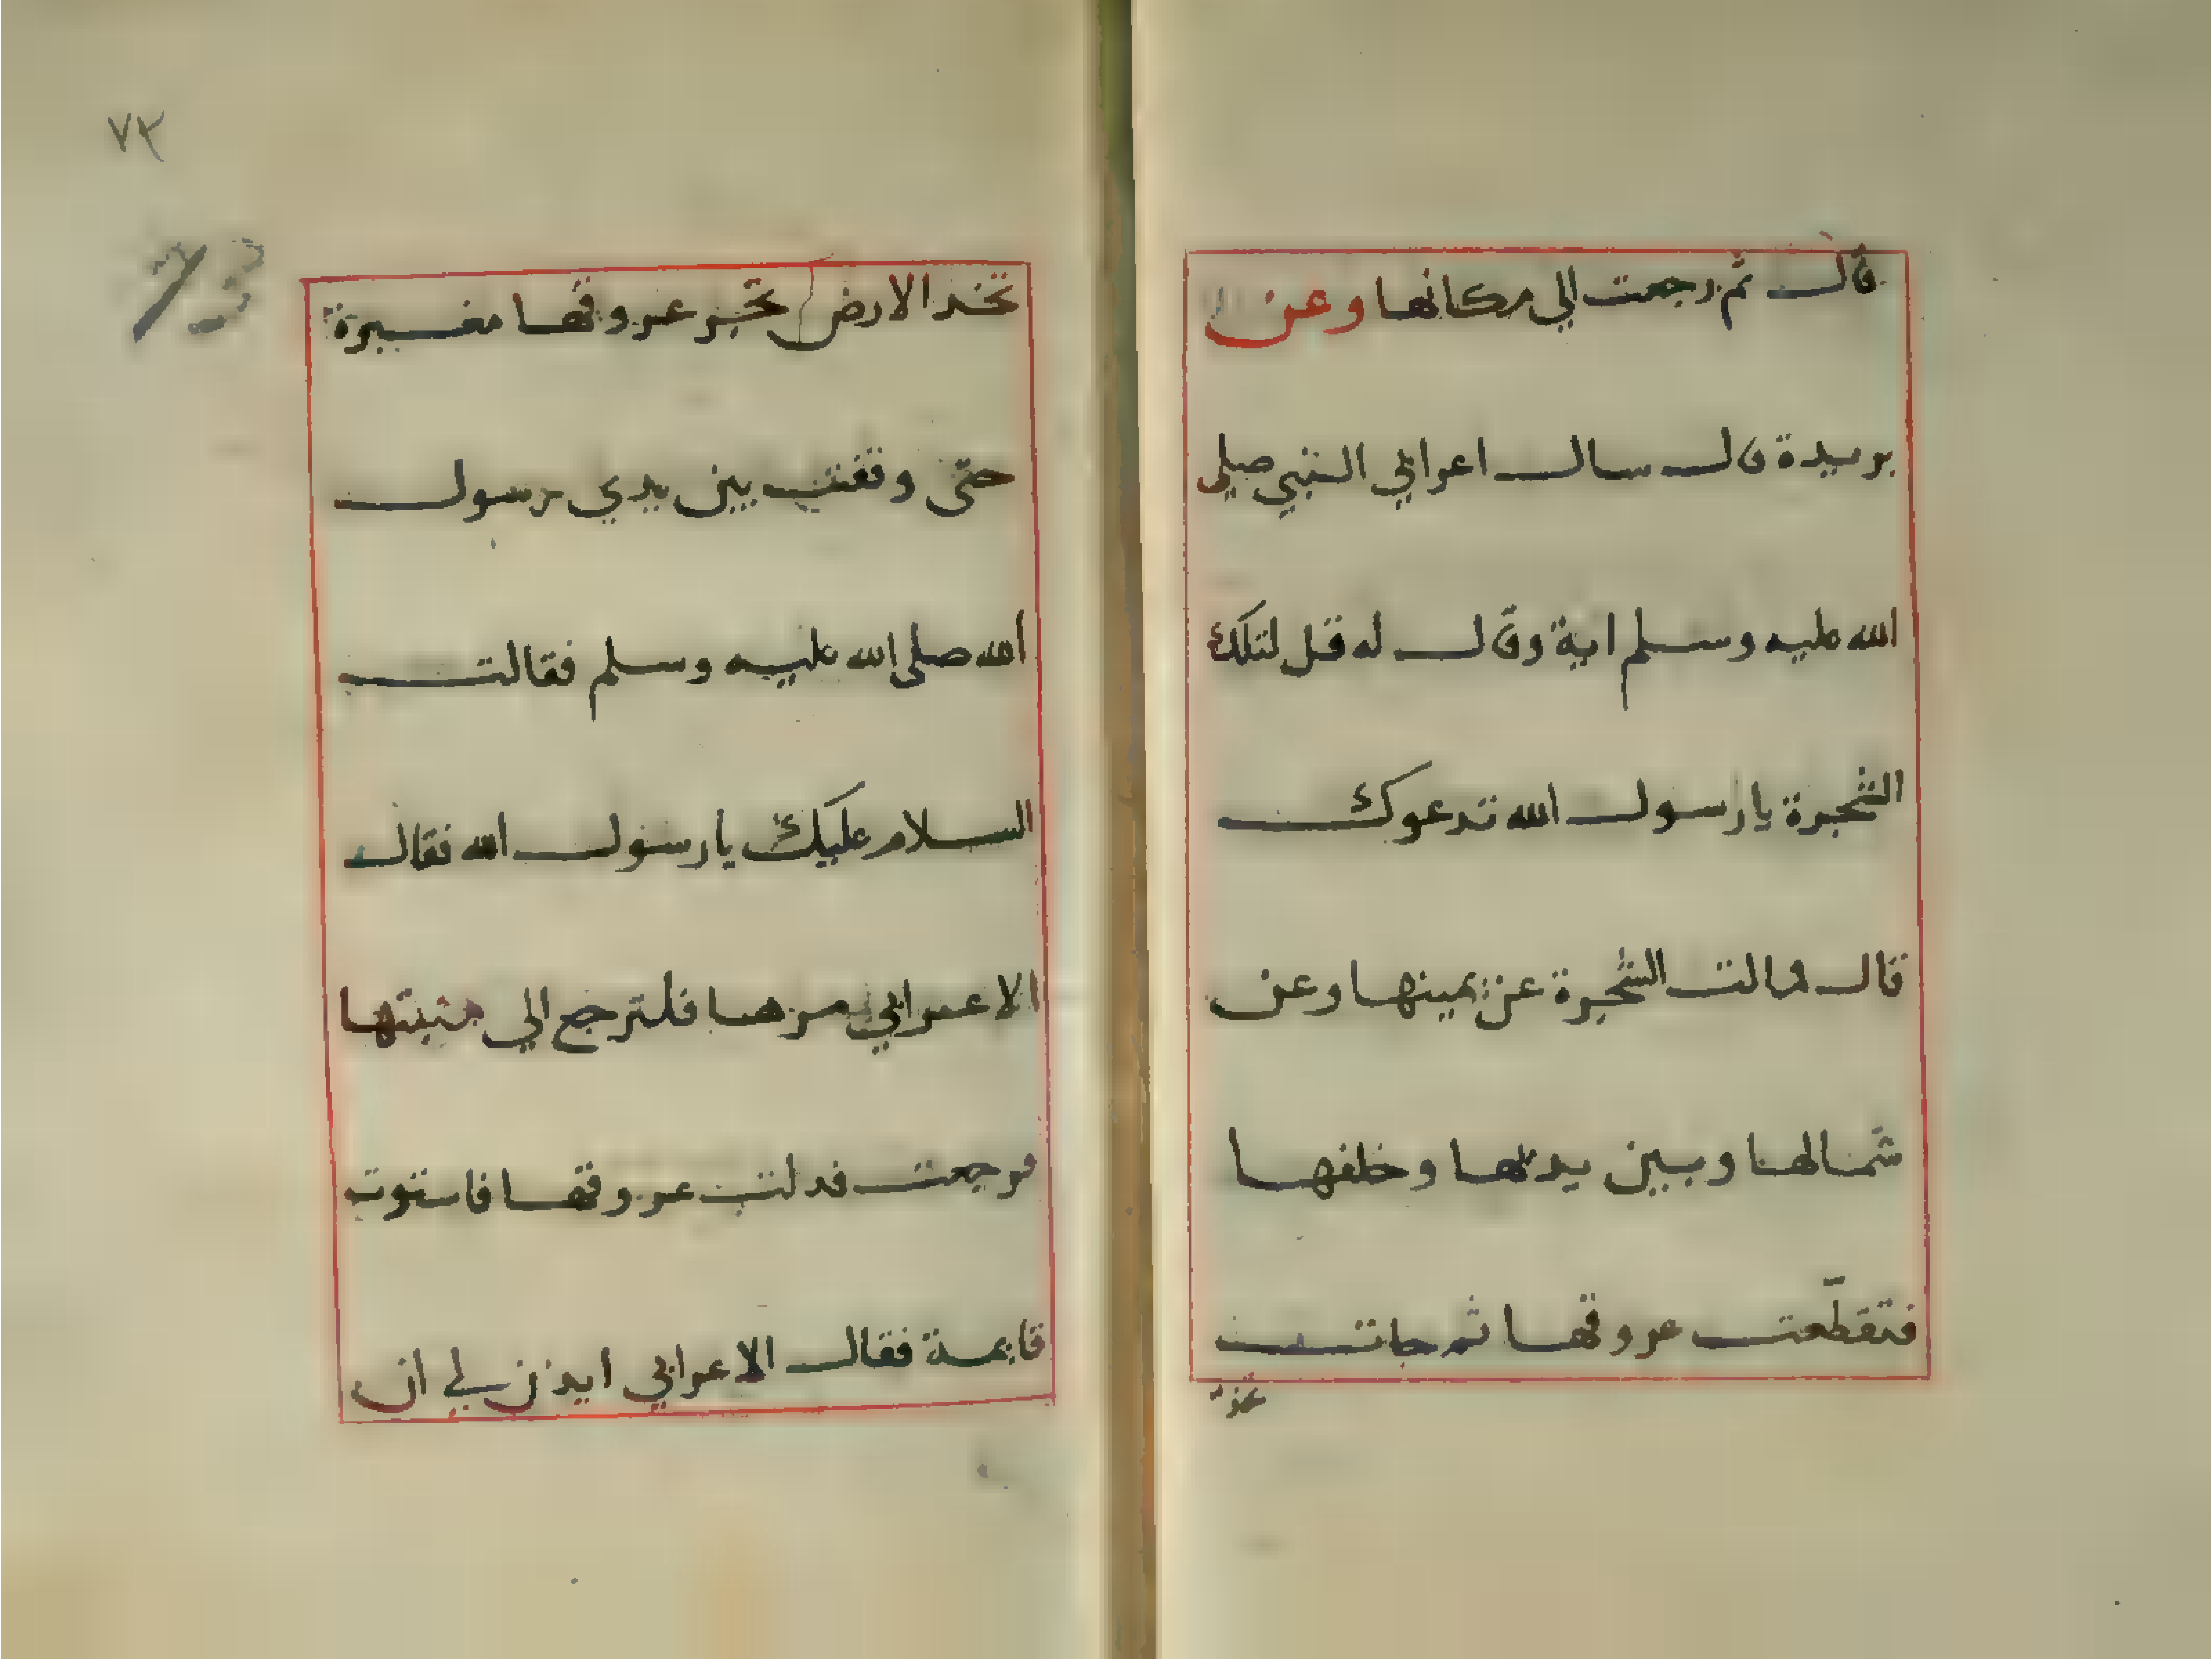 قال ثم رجعت الي مكانها وعن
بريدة قال سال اعرابي النبي صلي
الله عليه وسلم اية وقال له قل لتلك
الشجرة يا رسول الله تدعوك
قال فمالت الشجرة عن يمينها وعن
شمالها وبين يديها وخلفها
فتقطعت عروقها ثم جات
تخد
٧٣
تخد الارض تجر عروقها مغبرة
حتى وقفت بين يدي رسول
الله صلى الله عليه وسلم فقالت
السلام عليك يا رسول الله فقال
الاعرابي مرها فلترجع الي منبتها
فرجعت فدلت عروقها فاستوت
قايمة فقال الاعرابي ايذن لي ان